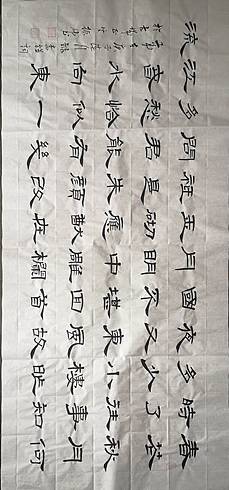 春花秋月何
時了往事知
多少小樓昨
夜又東風故
國不堪回首
月明中雕欄
玉砌應猷在
祗是朱顏改
問君能有幾
多愁恰似一
江春水向東
流